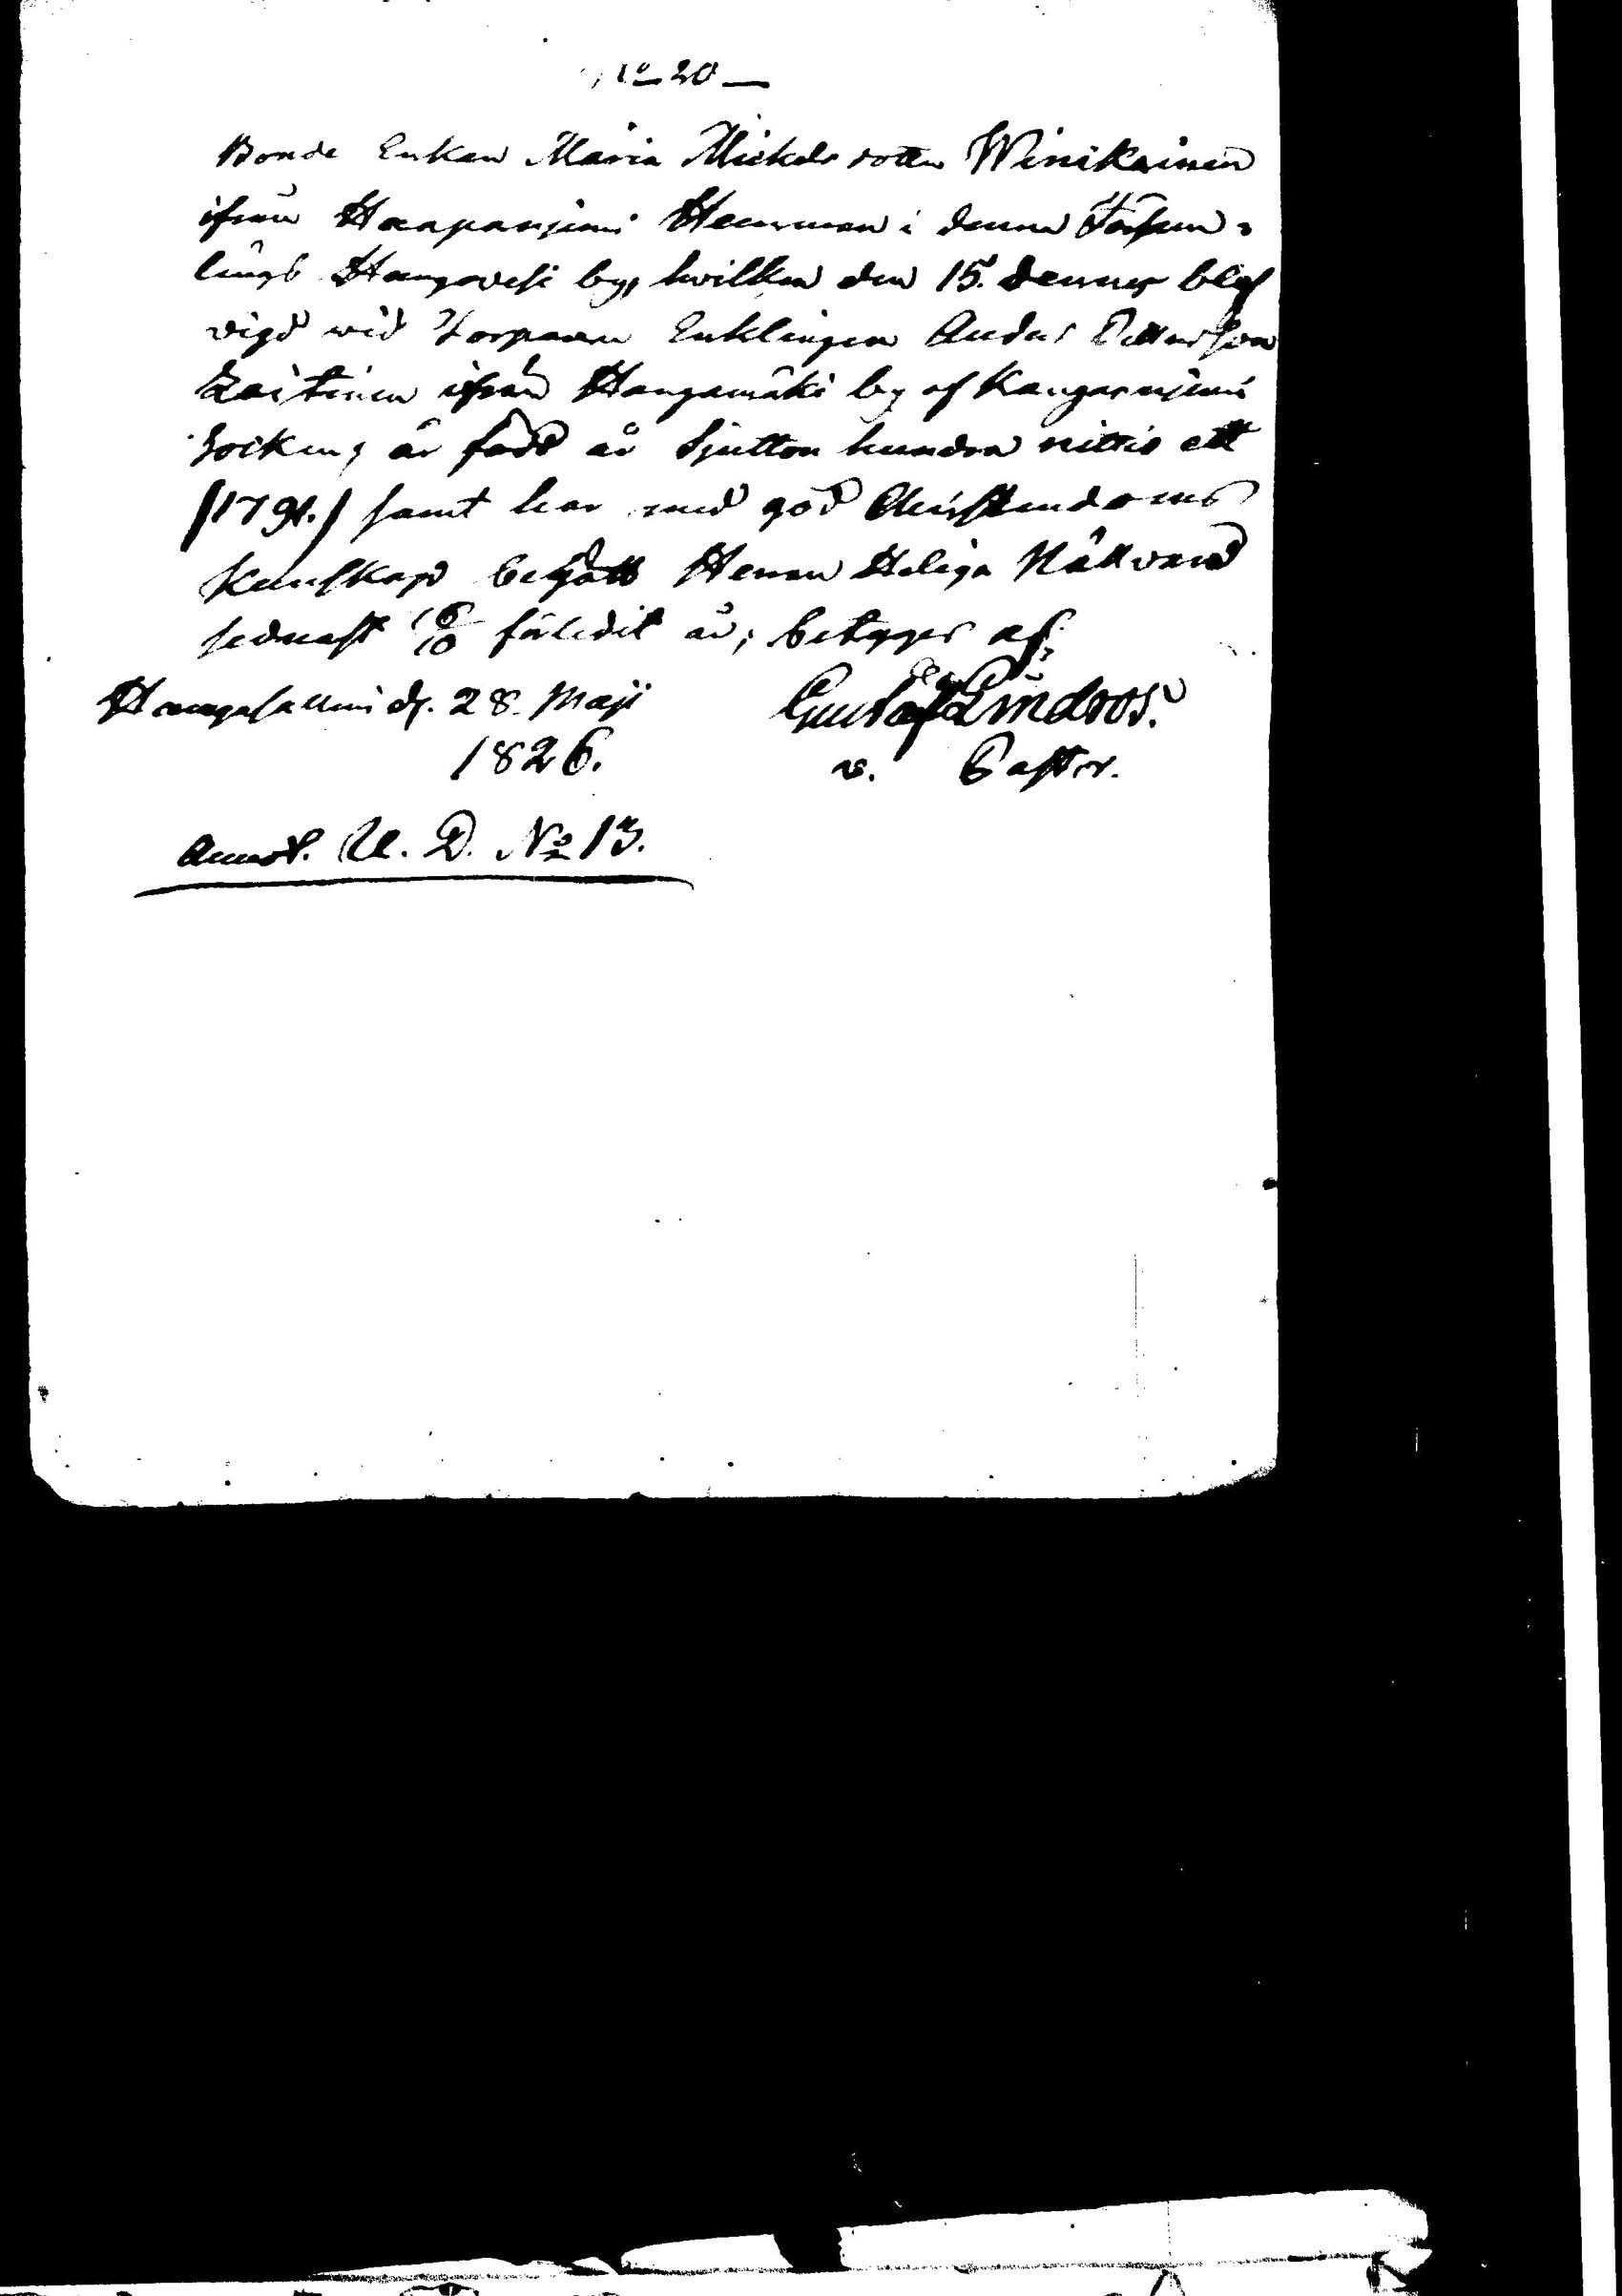 No 20
Bonde Enkan Maria Mickelsdotter Winikainen
ifrån Haapaniemi Hemman i denna Försam-
lings Hangavesi by, hvilken den 15. dennes blef
vigd wid Torparen Enklingen Anders Pettersson
Laitinen ifrån Hangamäki by af Kangasniemi
Socken, är född år Sjutton hundra nittio ett
(1791.) samt har med god Christendoms
Kunskap begått Herrans Heliga Nattvard
sednast förledit år; betygas af
Hangasallmi d. 28 Maji Gustaf Lindroos.
1826. v. Pastor.
Annot. U. D. No 13.